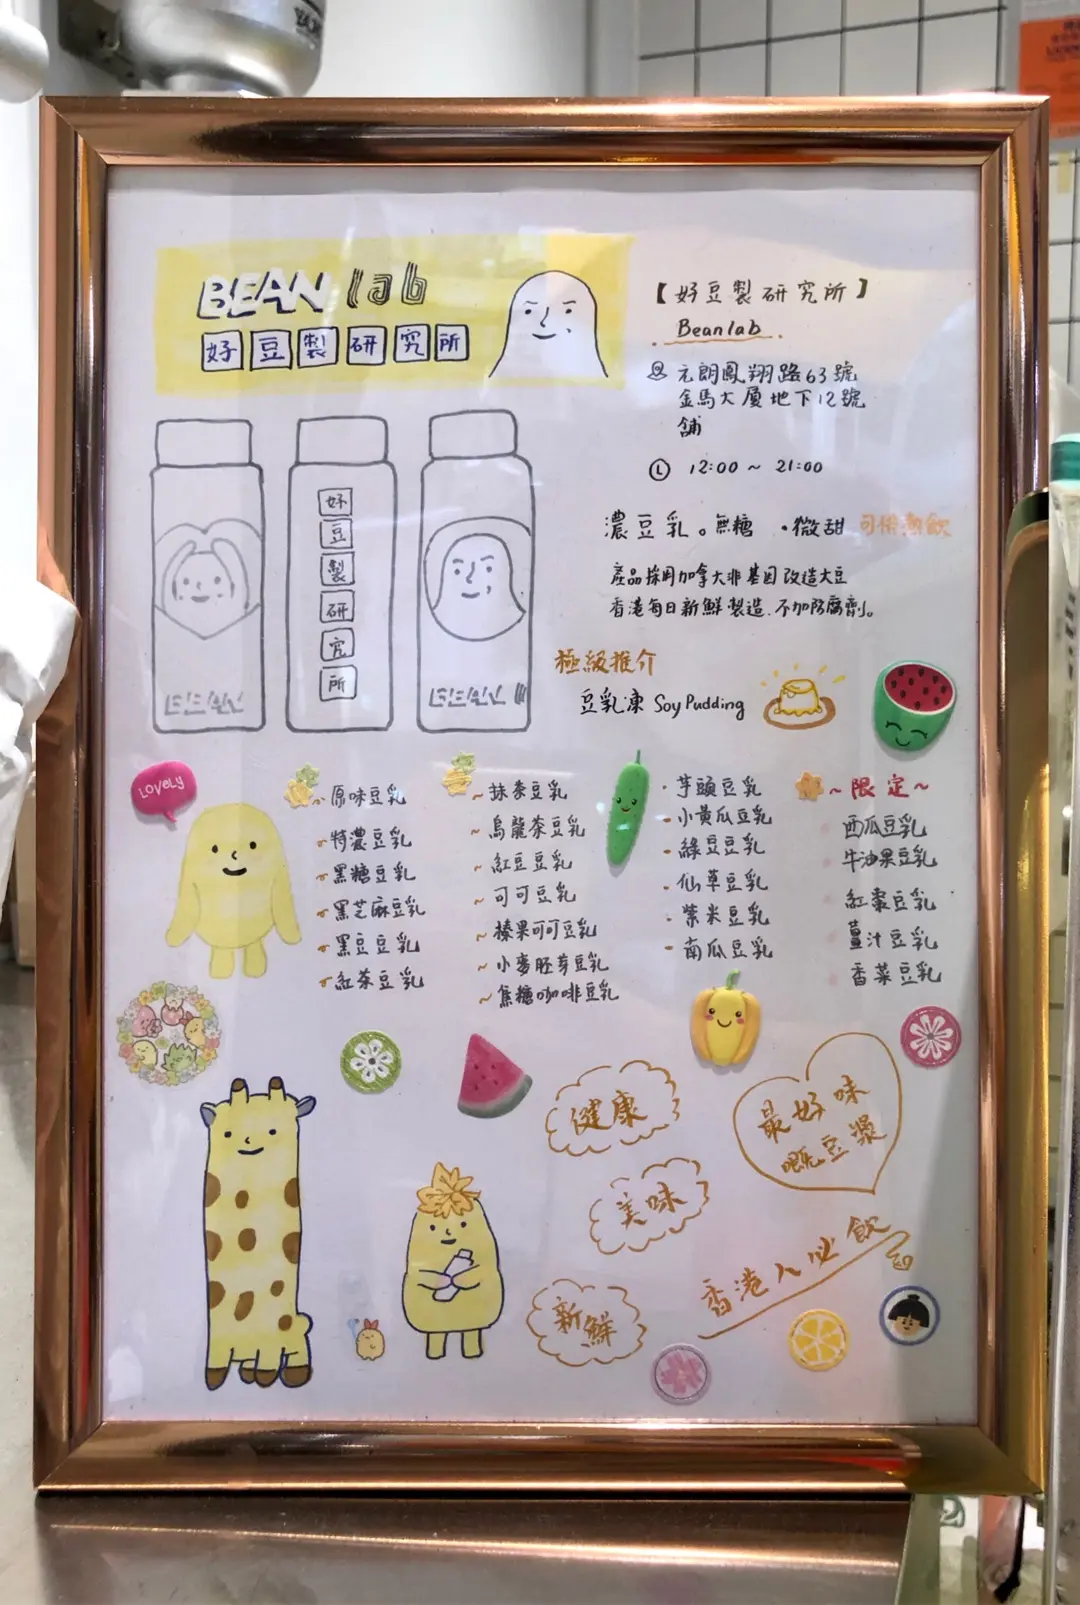 BEAN lab
好豆製研究所
【好豆製研究所】
Beanlab
元朗鳳翔路63號
金馬大廈地下12號
舖
12:00～21:00
好豆製研究所
BEAN
BEAN
濃豆乳。無糖 ·微甜 可供熱飲
產品採用加拿大非基因改造大豆
香港每日新鮮製造.不加防腐劑。
極級推介
豆乳凍 Soy Pudding
LOVELY
~原味豆乳
特濃豆乳
黑糖豆乳
黑芝麻豆乳
黑豆豆乳
紅茶豆乳
~抹茶豆乳
~烏龍茶豆乳
~紅豆豆乳
~可可豆乳
~榛果可可豆乳
~小麥胚芽豆乳
~焦糖咖啡豆乳
·芋頭豆乳
-小黃瓜豆乳
-綠豆豆乳
-仙草豆乳
-紫米豆乳
-南瓜豆乳
~限定~
西瓜豆乳
牛油果豆乳
紅棗豆乳
薑汁豆乳
香菜豆乳
健康
美味
新鮮
最好味
嘅豆漿
香港人必飲